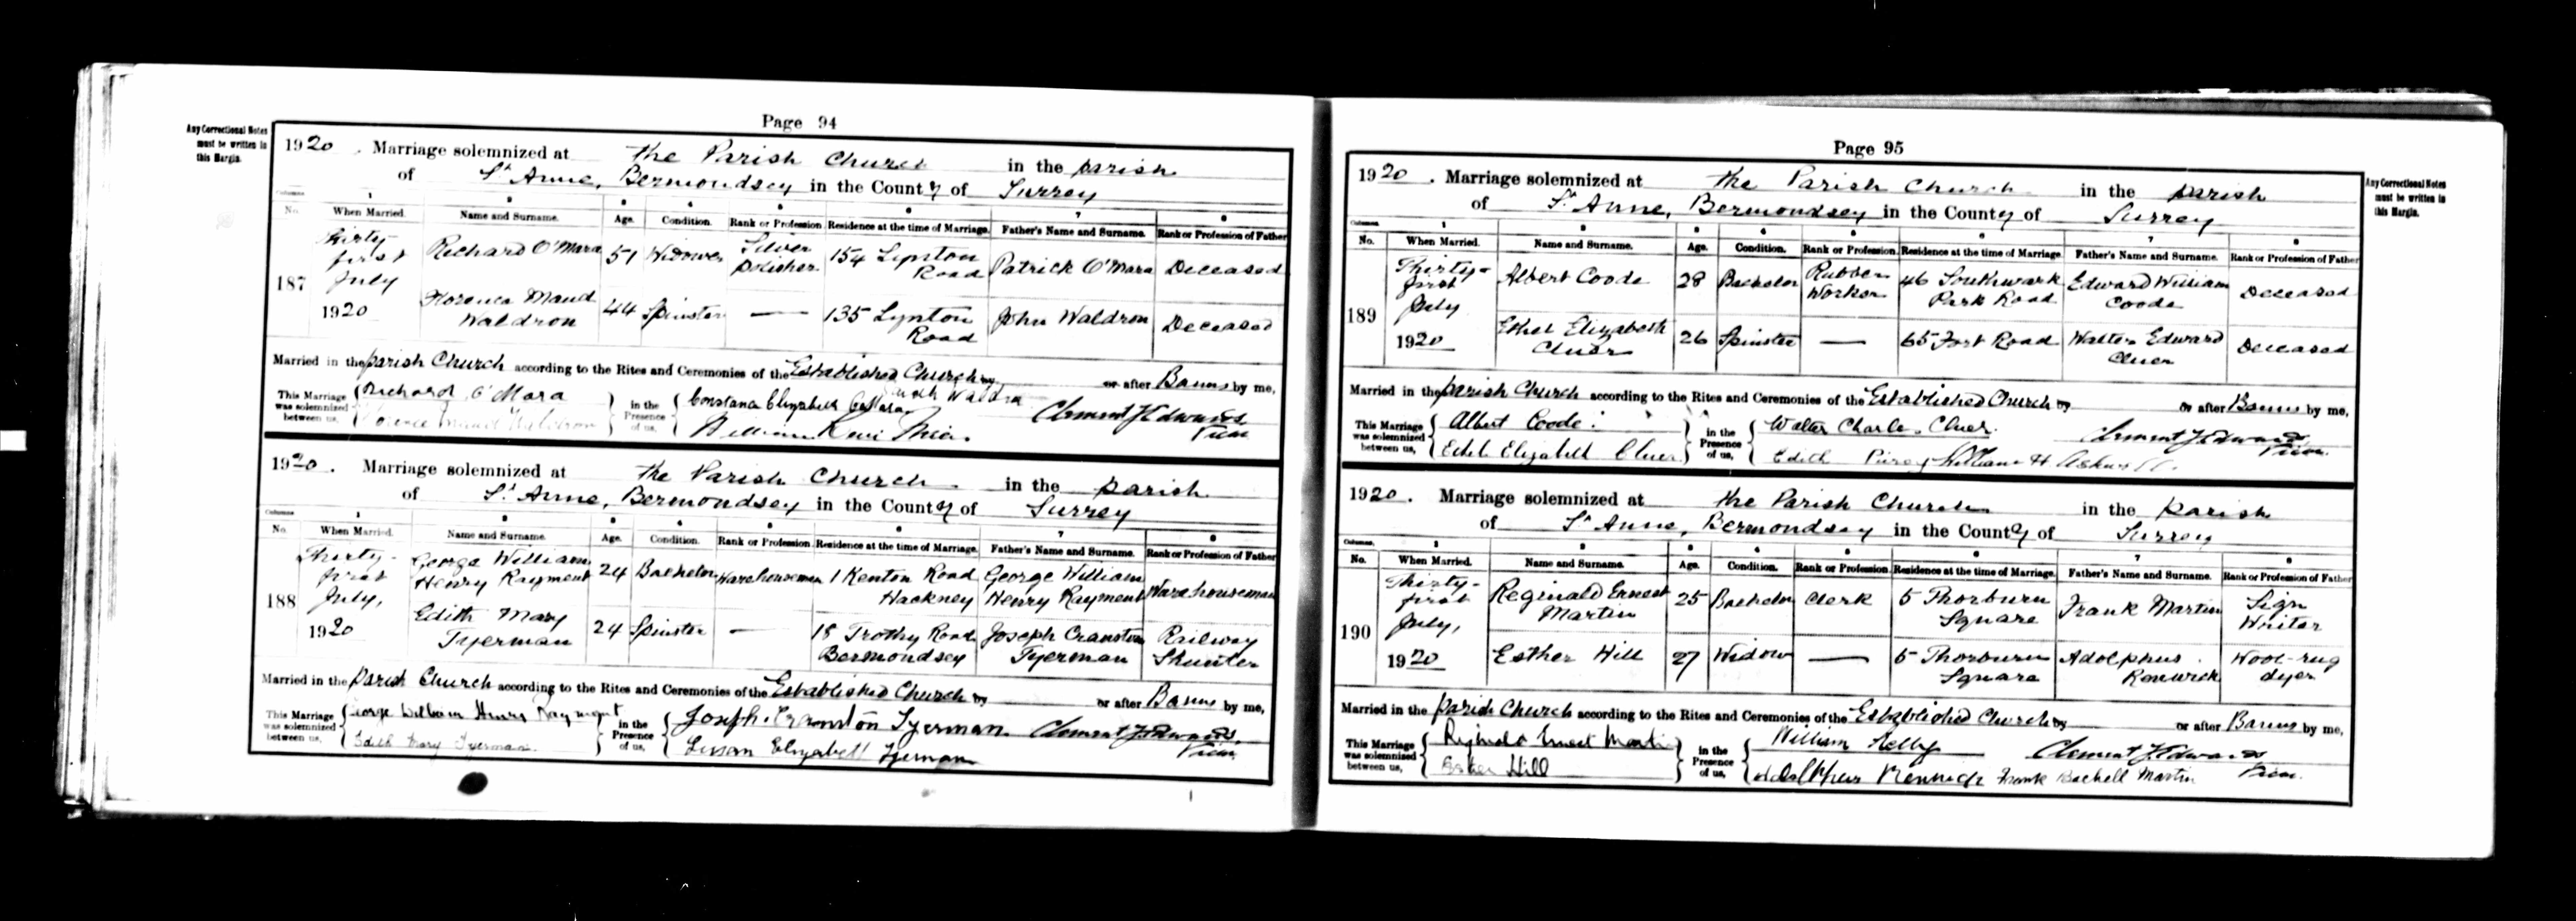 Page 94
Any Correctional Notes
must be written in
this Margin.
1920 . Marriage solemnized at the Parish Church in the parish
of St Anne, Bermondsey in the County of Surrey
Columns. 1 2 3 4 5 6 7 8
No. When Married. Name and Surname. Age. Condition. Rank or Profession. Residence at the time of Marriage. Father's Name and Surname. Rank or Profession of Father
187 Thirty-first July 1920 Richard O'Mara 51 Widower Silver polisher 154 Lynton Road Patrick O'Mara Deceased
Florence Maud Waldron 44 Spinster — 135 Lynton Road John Waldron Deceased
Married in the parish Church according to the Rites and Ceremonies of the Established Church by or after Banns by me,
This Marriage was solemnized between us, Richard O'Mara in the Presence of us, Constance Elizabeth O'Mara Clement J Edwards
Florence Maud Waldron William Vicar
1920 . Marriage solemnized at the Parish Church in the parish
of St Anne, Bermondsey in the County of Surrey
Columns. 1 2 3 4 5 6 7 8
No. When Married. Name and Surname. Age. Condition. Rank or Profession. Residence at the time of Marriage. Father's Name and Surname. Rank or Profession of Father
188 Thirty-first July, 1920 George William Henry Rayment 24 Bachelor Warehouseman 1 Kenton Road Hackney George William Henry Rayment Warehouseman
Edith Mary Tyerman 24 Spinster — 18 Trothy Road Bermondsey Joseph Cranston Tyerman Railway Shunter
Married in the Parish Church according to the Rites and Ceremonies of the Established Church by or after Banns by me,
This Marriage was solemnized between us, George William Henry Rayment in the Presence of us, Joseph Cranston Tyerman Clement J Edwards,
Edith Mary Tyerman Susan Elizabeth Tyerman Vicar
Page 95
Any Correctional Notes
must be written in
this Margin.
1920 . Marriage solemnized at the Parish Church in the parish
of St Anne, Bermondsey in the County of Surrey
Columns. 1 2 3 4 5 6 7 8
No. When Married. Name and Surname. Age. Condition. Rank or Profession. Residence at the time of Marriage. Father's Name and Surname. Rank or Profession of Father
189 Thirty-first July 1920 Albert Coode 28 Bachelor Rubber Worker 46 Southwark Park Road Edward William Coode Deceased
Ethel Elizabeth Cluer 26 Spinster — 65 Fort Road Walter Edward Cluer Deceased
Married in the parish Church according to the Rites and Ceremonies of the Established Church by or after Banns by me,
This Marriage was solemnized between us, Albert Coode in the Presence of us, Walter Charles Cluer. Clement J Edwards,
Ethel Elizabeth Cluer Edith William H. Vicar.
1920 . Marriage solemnized at the Parish Church in the parish
of St Anne, Bermondsey in the County of Surrey
Columns. 1 2 3 4 5 6 7 8
No. When Married. Name and Surname. Age. Condition. Rank or Profession. Residence at the time of Marriage. Father's Name and Surname. Rank or Profession of Father
190 Thirty-first July, 1920 Reginald Ernest Martin 25 Bachelor Clerk 5 Thorburn Square Frank Martin Sign Writer
Esther Hill 27 Widow — 5 Thorburn Square Adolphus Renwick Wool-rug dyer
Married in the parish Church according to the Rites and Ceremonies of the Established Church by or after Banns by me,
This Marriage was solemnized between us, Reginald Ernest Martin in the Presence of us, William Kelly Clement J Edwards
Esther Hill Adolphus Renwick Frank Martin Vicar.